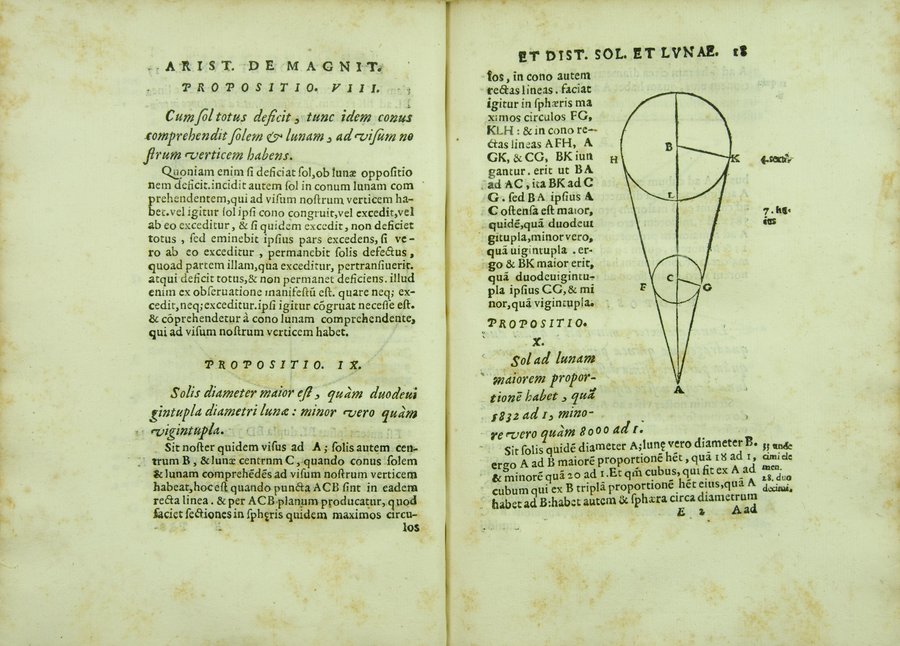 ARIST. DE MAGNIT.
PROPOSITIO. VIII.
Cum sol totus deficit, tunc idem conus
comprehendit solem & lunam, ad visum no
strum verticem habens.
Quoniam enim si deficiat sol, ob lunæ oppositio
nem deficit. incidit autem sol in conum lunam com
prehendentem, qui ad visum nostrum verticem ha-
bet. vel igitur sol ipsi cono congruit, vel excedit, vel
ab eo exceditur, & si quidem excedit, non deficiet
totus, sed eminebit ipsius pars excedens, si ve-
ro ab eo exceditur, permanebit solis defectus,
quoad partem illam, qua exceditur, pertransiuerit.
atqui deficit totus, & non permanet deficiens. illud
enim ex obseruatione manifestū est. quare neq; ex-
cedit, neq; exceditur. ipsi igitur cōgruat necesse est.
& cōprehendetur à cono lunam comprehendente,
qui ad visum nostrum verticem habet.
PROPOSITIO. IX.
Solis diameter maior est, quàm duodeui
gintupla diametri lunæ: minor vero quàm
vigintupla.
Sit noster quidem visus ad A; solis autem cen-
trum B, & lunæ centrum C, quando conus solem
& lunam comprehēdēs ad visum nostrum verticem
habeat, hoc est quando puncta ACB sint in eadem
recta linea. & per ACB planum producatur, quod
faciet sectiones in sphęris quidem maximos circu-
los
ET DIST. SOL. ET LVNAE. 18
los, in cono autem
rectas lineas. faciat
igitur in sphæris ma
ximos circulos FG,
KLH: & in cono re-
ctas lineas AFH, A
GK, & CG, BK iun
gantur. erit ut BA
ad AC, ita BK ad C
G. sed BA ipsius A
C ostensa est maior,
quidē, quā duodeui
gitupla, minor vero,
quā uigintupla. er-
go & BK maior erit,
quā duodeuigintu-
pla ipsius CG, & mi
nor, quā vigintupla.
H
B
K
L
C
F
G
A
4. sexti
7. hu-
ius
PROPOSITIO.
X.
Sol ad lunam
maiorem propor-
tionē habet, quā
1832 ad 1, mino-
re vero quàm 8000 ad 1.
Sit solis quidē diameter A; lunę vero diameter B.
ergo A ad B maiorē proportionē hēt, quā 18 ad 1,
& minorē quā 20 ad 1. Et qm̄ cubus, qui fit ex A ad
cubum qui ex B triplā proportionē hēt eius, quā A
habet ad B: habet autem & sphæra circa diametrum
33 unde
cimi ele
men.
18. duo
decimi,
E 2 A ad